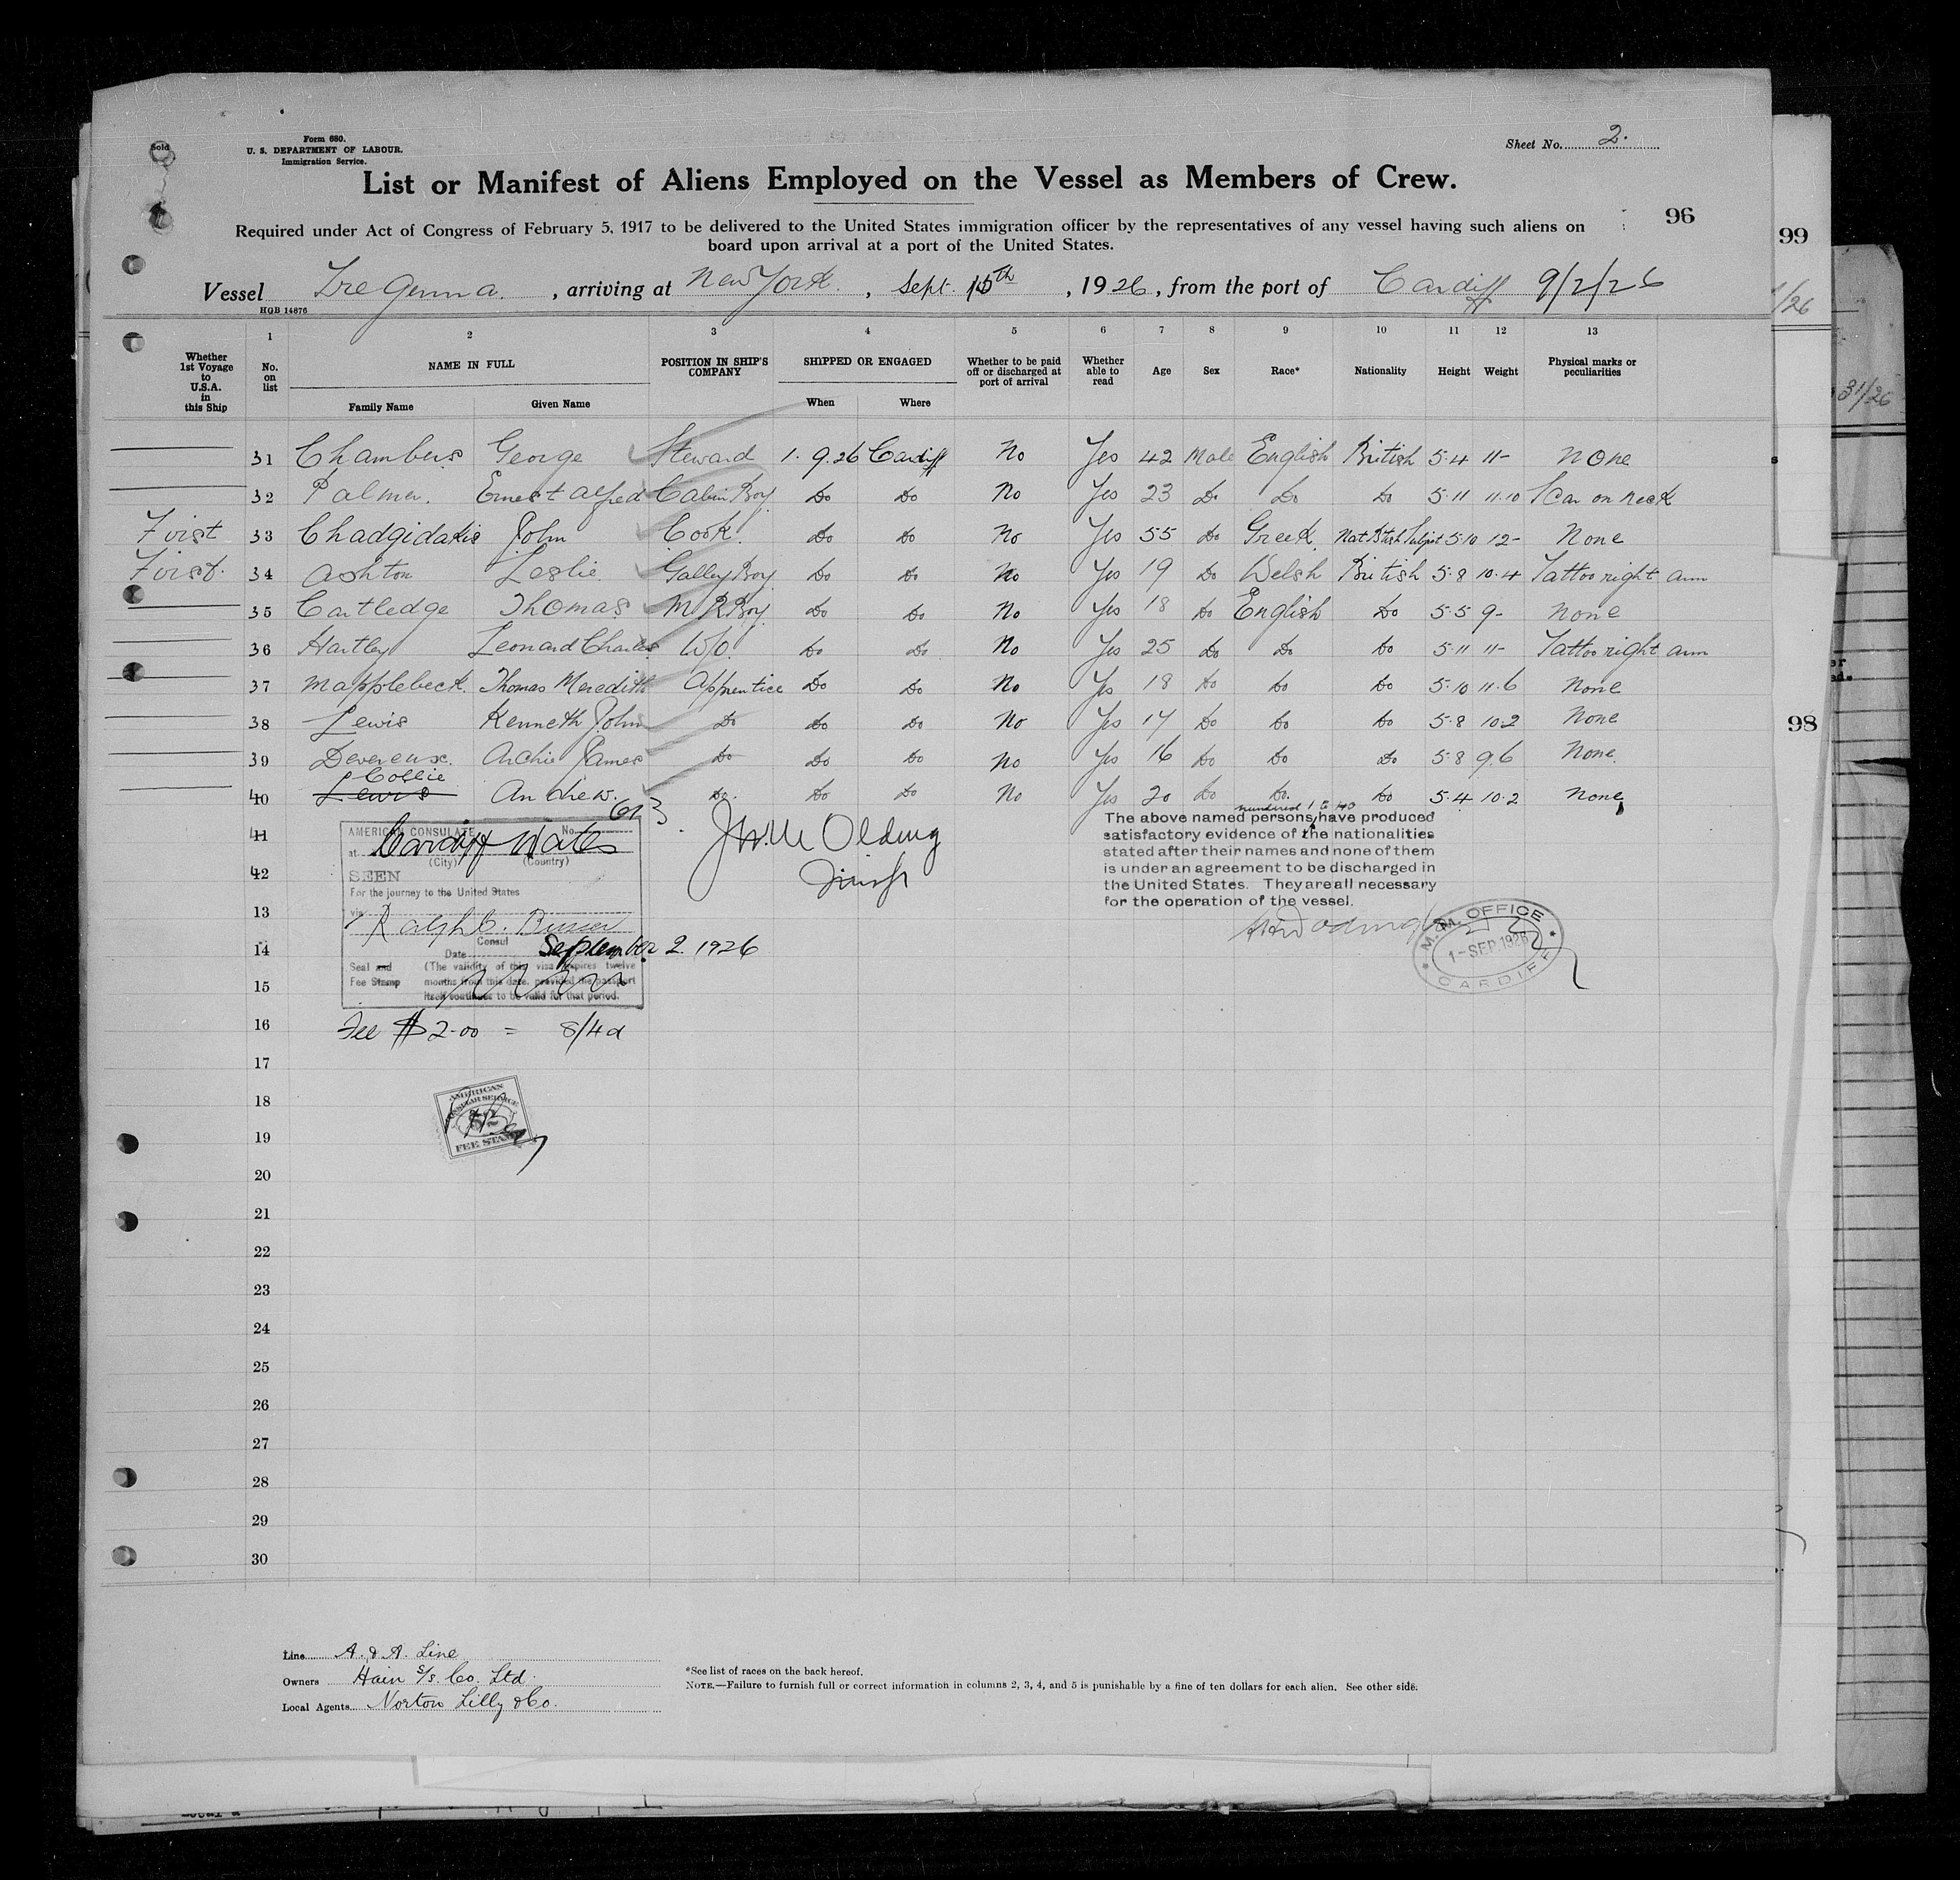 Form 680.
U. S. DEPARTMENT OF LABOUR.
Immigration Service.
Sheet No. 2.
List or Manifest of Aliens Employed on the Vessel as Members of Crew.
96
Required under Act of Congress of February 5, 1917 to be delivered to the United States immigration officer by the representatives of any vessel having such aliens on
board upon arrival at a port of the United States.
99
Vessel Tregenna. , arriving at New York. , Sept. 15th , 1926, from the port of Cardiff 9/2/26
HGB 14876
1 2 3 4 5 6 7 8 9 10 11 12 13
Whether 1st Voyage to U.S.A. in this Ship No. on list NAME IN FULL POSITION IN SHIP'S COMPANY SHIPPED OR ENGAGED Whether to be paid off or discharged at port of arrival Whether able to read Age Sex Race* Nationality Height Weight Physical marks or peculiarities
Family Name Given Name When Where
31/26
31 Chambers George Steward 1.9.26 Cardiff No Yes 42 Male English British 5.4 11- None
32 Palmer. Ernest Alfred Cabin Boy Do Do No Yes 23 Do Do Do 5.11 11.10 Scar on neck
First 33 Chadgidakis John Cook. Do Do No Yes 55 Do Greek Nat Btsh Subjct 5.10 12- None
First. 34 Ashton Leslie. Galley Boy Do Do No Yes 19 Do Welsh British 5.8 10.4 Tattoo right arm
35 Cartledge Thomas M R Boy. Do Do No Yes 18 Do English Do 5.5 9- None
36 Hartley Leonard Charles W/O. Do Do No Yes 25 Do Do Do 5.11 11- Tattoo right arm
37 Mapplebeck. Thomas Meredith Apprentice Do Do No Yes 18 Do Do Do 5.10 11.6 None
38 Lewis Kenneth John Do Do Do No Yes 17 Do Do Do 5.8 10.2 None
98
39 Devereux. Archie James Do Do Do No Yes 16 Do Do Do 5.8 9.6 None.
Collie
40 Lewis Andrew. Do. Do Do No Yes 20 Do Do. Do 5.4 10.2 None
numbered 1 to 40
The above named persons have produced
satisfactory evidence of the nationalities
stated after their names and none of them
is under an agreement to be discharged in
the United States. They are all necessary
for the operation of the vessel.
41
42
13
14
15
16
17
18
19
20
21
22
23
24
25
26
27
28
29
30
AMERICAN CONSULATE No. 613
at Cardiff Wales
(City) (Country)
SEEN
For the journey to the United States
via
Ralph C. Busser
Consul
Date September 2. 1926
Seal and Fee Stamp
(The validity of this visa expires twelve
months from this date, provided the passport
itself continues to be valid for that period.
Fee $2.00 = 8/4d
AMERICAN
CONSULAR SERVICE
FEE STAMP
M.M. OFFICE
1-SEP.1926
CARDIFF
Line A. & A. Line
Owners Hain S/S. Co. Ltd.
Local Agents Norton Lilly & Co.
*See list of races on the back hereof.
NOTE.—Failure to furnish full or correct information in columns 2, 3, 4, and 5 is punishable by a fine of ten dollars for each alien. See other side.